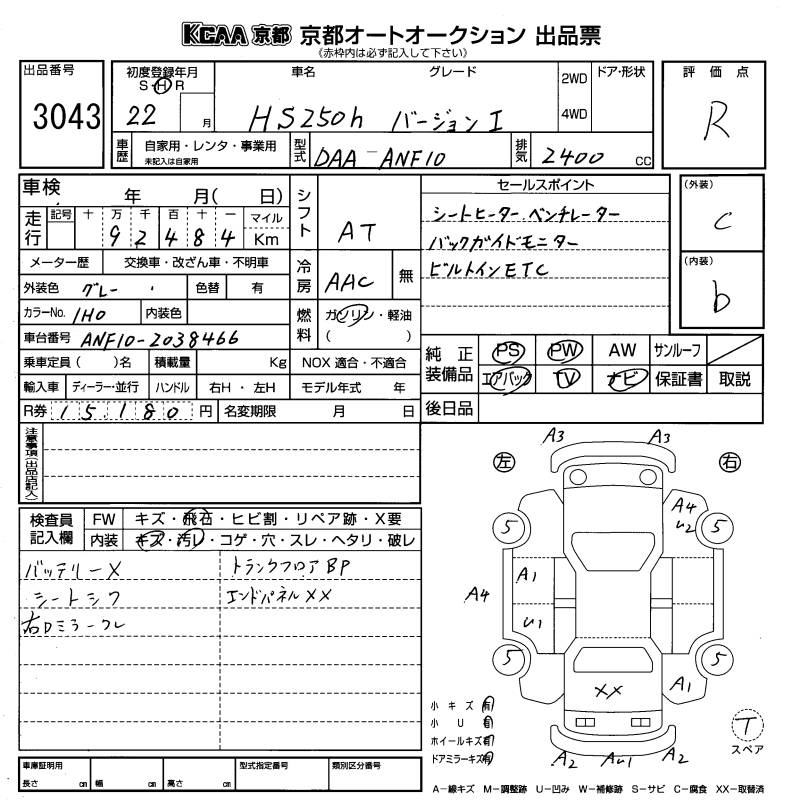 KCAA 京都 京都オートオークション 出品票
《赤枠内は必ず記入して下さい》
出品番号
3043
初度登録年月
S・H・R
22 月
車名 グレード
HS250h バージョンI
2WD
4WD
ドア・形状
車歴 自家用・レンタ・事業用
未記入は自家用
型式 DAA-ANF10
排気 2400 CC
評価点
R
車検 年 月( 日)
走行 記号 十 万 千 百 十 一 マイル
9 2 4 8 4 Km
メーター歴 交換車・改ざん車・不明車
外装色 グレー 色替 有
カラーNo. 1H0 内装色
車台番号 ANF10-2038466
乗車定員( )名 積載量 Kg
輸入車 ディーラー・並行 ハンドル 右H・左H
R券 15,180 円 名変期限 月 日
シフト AT
冷房 AAC 無
燃料 ガソリン・軽油
( )
NOX 適合・不適合
モデル年式 年
セールスポイント
シートヒーター.ベンチレーター
バックガイドモニター
ビルトインETC
(外装)
C
(内装)
b
純正装備品 PS PW AW サンルーフ
エアバック TV ナビ 保証書 取説
後日品
注意事項(出品店記入)
検査員記入欄 FW キズ・飛石・ヒビ割・リペア跡・X要
内装 キズ・汚レ・コゲ・穴・スレ・ヘタリ・破レ
バッテリーX トランクフロアBP
シートシワ エンドパネルXX
右Dミラークレ
左 右
A3 A3
A4
U2
5 5
A1
A4
U1
5 5
A1
XX
A2 AU1 A2
小キズ 有
小U 有
ホイールキズ 有
ドアミラーキズ 有
T
スペア
車庫証明用
長さ cm 幅 cm 高さ cm
型式指定番号 類別区分番号
A-線キズ M-調整跡 U-凹み W-補修跡 S-サビ C-腐食 XX-取替済